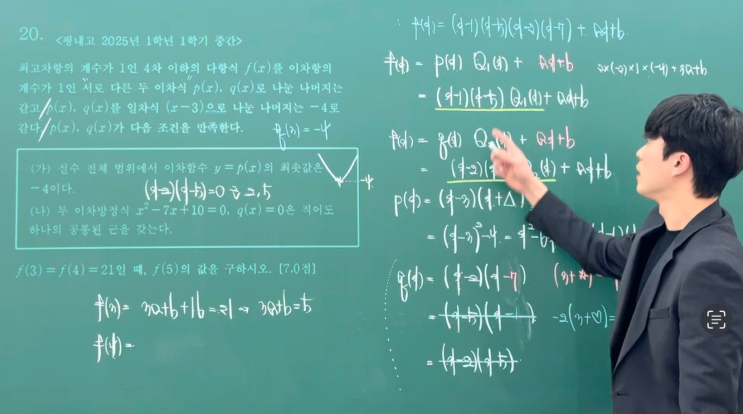 20. <평내고 2025년 1학년 1학기 중간>
최고차항의 계수가 1인 4차 이하의 다항식 f(x)를 이차항의
계수가 1인 서로 다른 두 이차식 p(x), q(x)로 나눈 나머지는
같고 p(x), q(x)를 일차식 (x-3)으로 나눈 나머지는 -4로
같다. p(x), q(x)가 다음 조건을 만족한다.
q(3)=-4
(가) 실수 전체 범위에서 이차함수 y=p(x)의 최솟값은
-4이다.
(x-2)(x-5)=0 2, 5
-4
(나) 두 이차방정식 x²-7x+10=0, q(x)=0은 적어도
하나의 공통된 근을 갖는다.
f(3)=f(4)=21일 때, f(5)의 값을 구하시오. [7.0점]
f(3) = 3a+b+16=21 → 3a+b=5
f(4) =
∴ f(x)=(x-1)(x-5)(x-2)(x-7)+ax+b
f(x) = p(x) Q₁(x) + ax+b
2×(-2)×1×(-4)+3a+b
= (x-1)(x-5) Q₁(x)+ax+b
f(x) = q(x) Q₂(x) + ax+b
+ ax+b
p(x) = (x-3)(x+△)
= (x-3)²-4 =
q(x) = (x-2)(x-7)
-2(3+♡)=
= (x-2)(x-5)